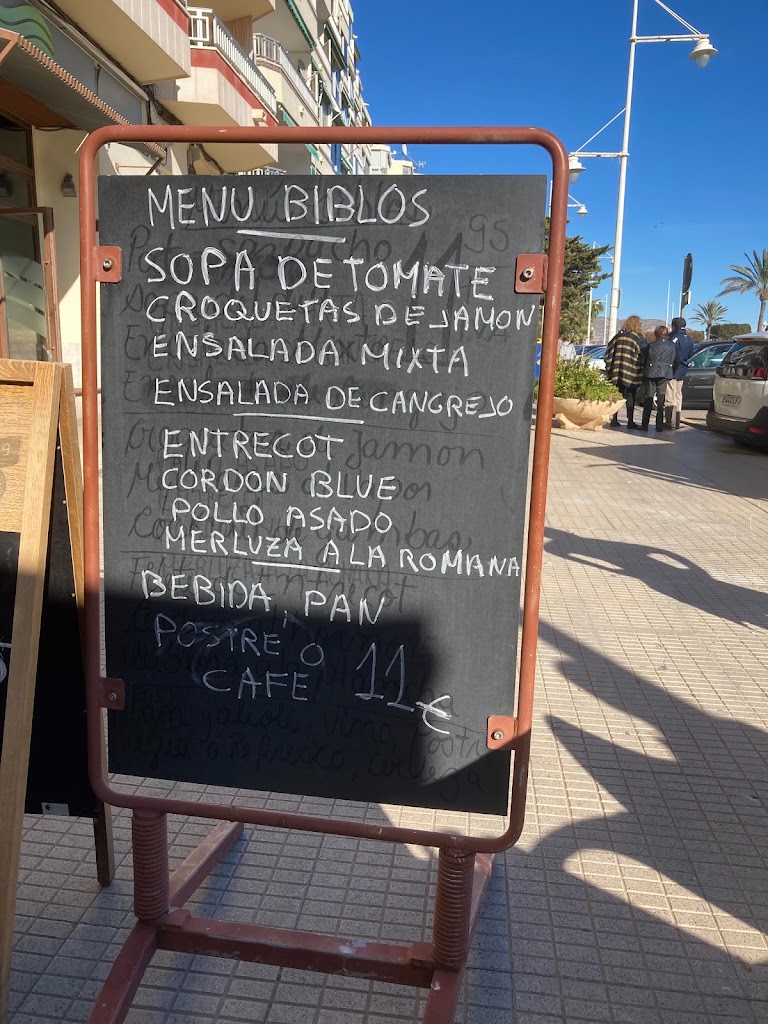 MENU BIBLOS
SOPA DE TOMATE
CROQUETAS DE JAMON
ENSALADA MIXTA
ENSALADA DE CANGREJO
ENTRECOT
CORDON BLUE
POLLO ASADO
MERLUZA A LA ROMANA
BEBIDA, PAN
POSTRE O
CAFE 11€